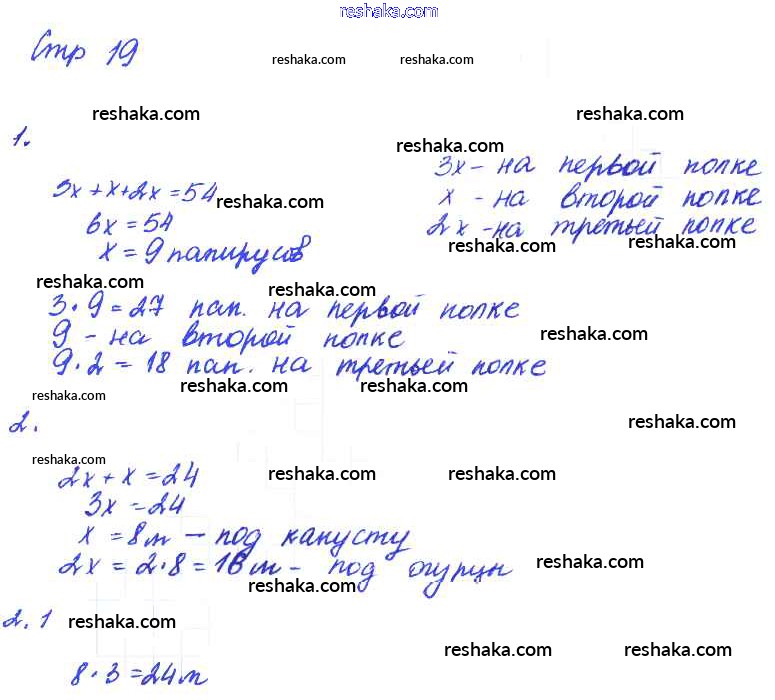 reshaka.com
Стр 19
reshaka.com reshaka.com
reshaka.com reshaka.com
1.
reshaka.com
3x - на первой полке
3x + x + 2x = 54
reshaka.com
x - на второй полке
6x = 54
2x - на третьей полке
reshaka.com reshaka.com
x = 9 папирусов
reshaka.com reshaka.com
3 · 9 = 27 пап. на первой полке
9 - на второй полке
reshaka.com
9 · 2 = 18 пап. на третьей полке
reshaka.com reshaka.com
reshaka.com
2.
reshaka.com
reshaka.com
2x + x = 24
reshaka.com reshaka.com
3x = 24
x = 8 м - под капусту
2x = 2 · 8 = 16 м - под огурцы
reshaka.com
reshaka.com
2.1
reshaka.com
reshaka.com reshaka.com
8 · 3 = 24 м